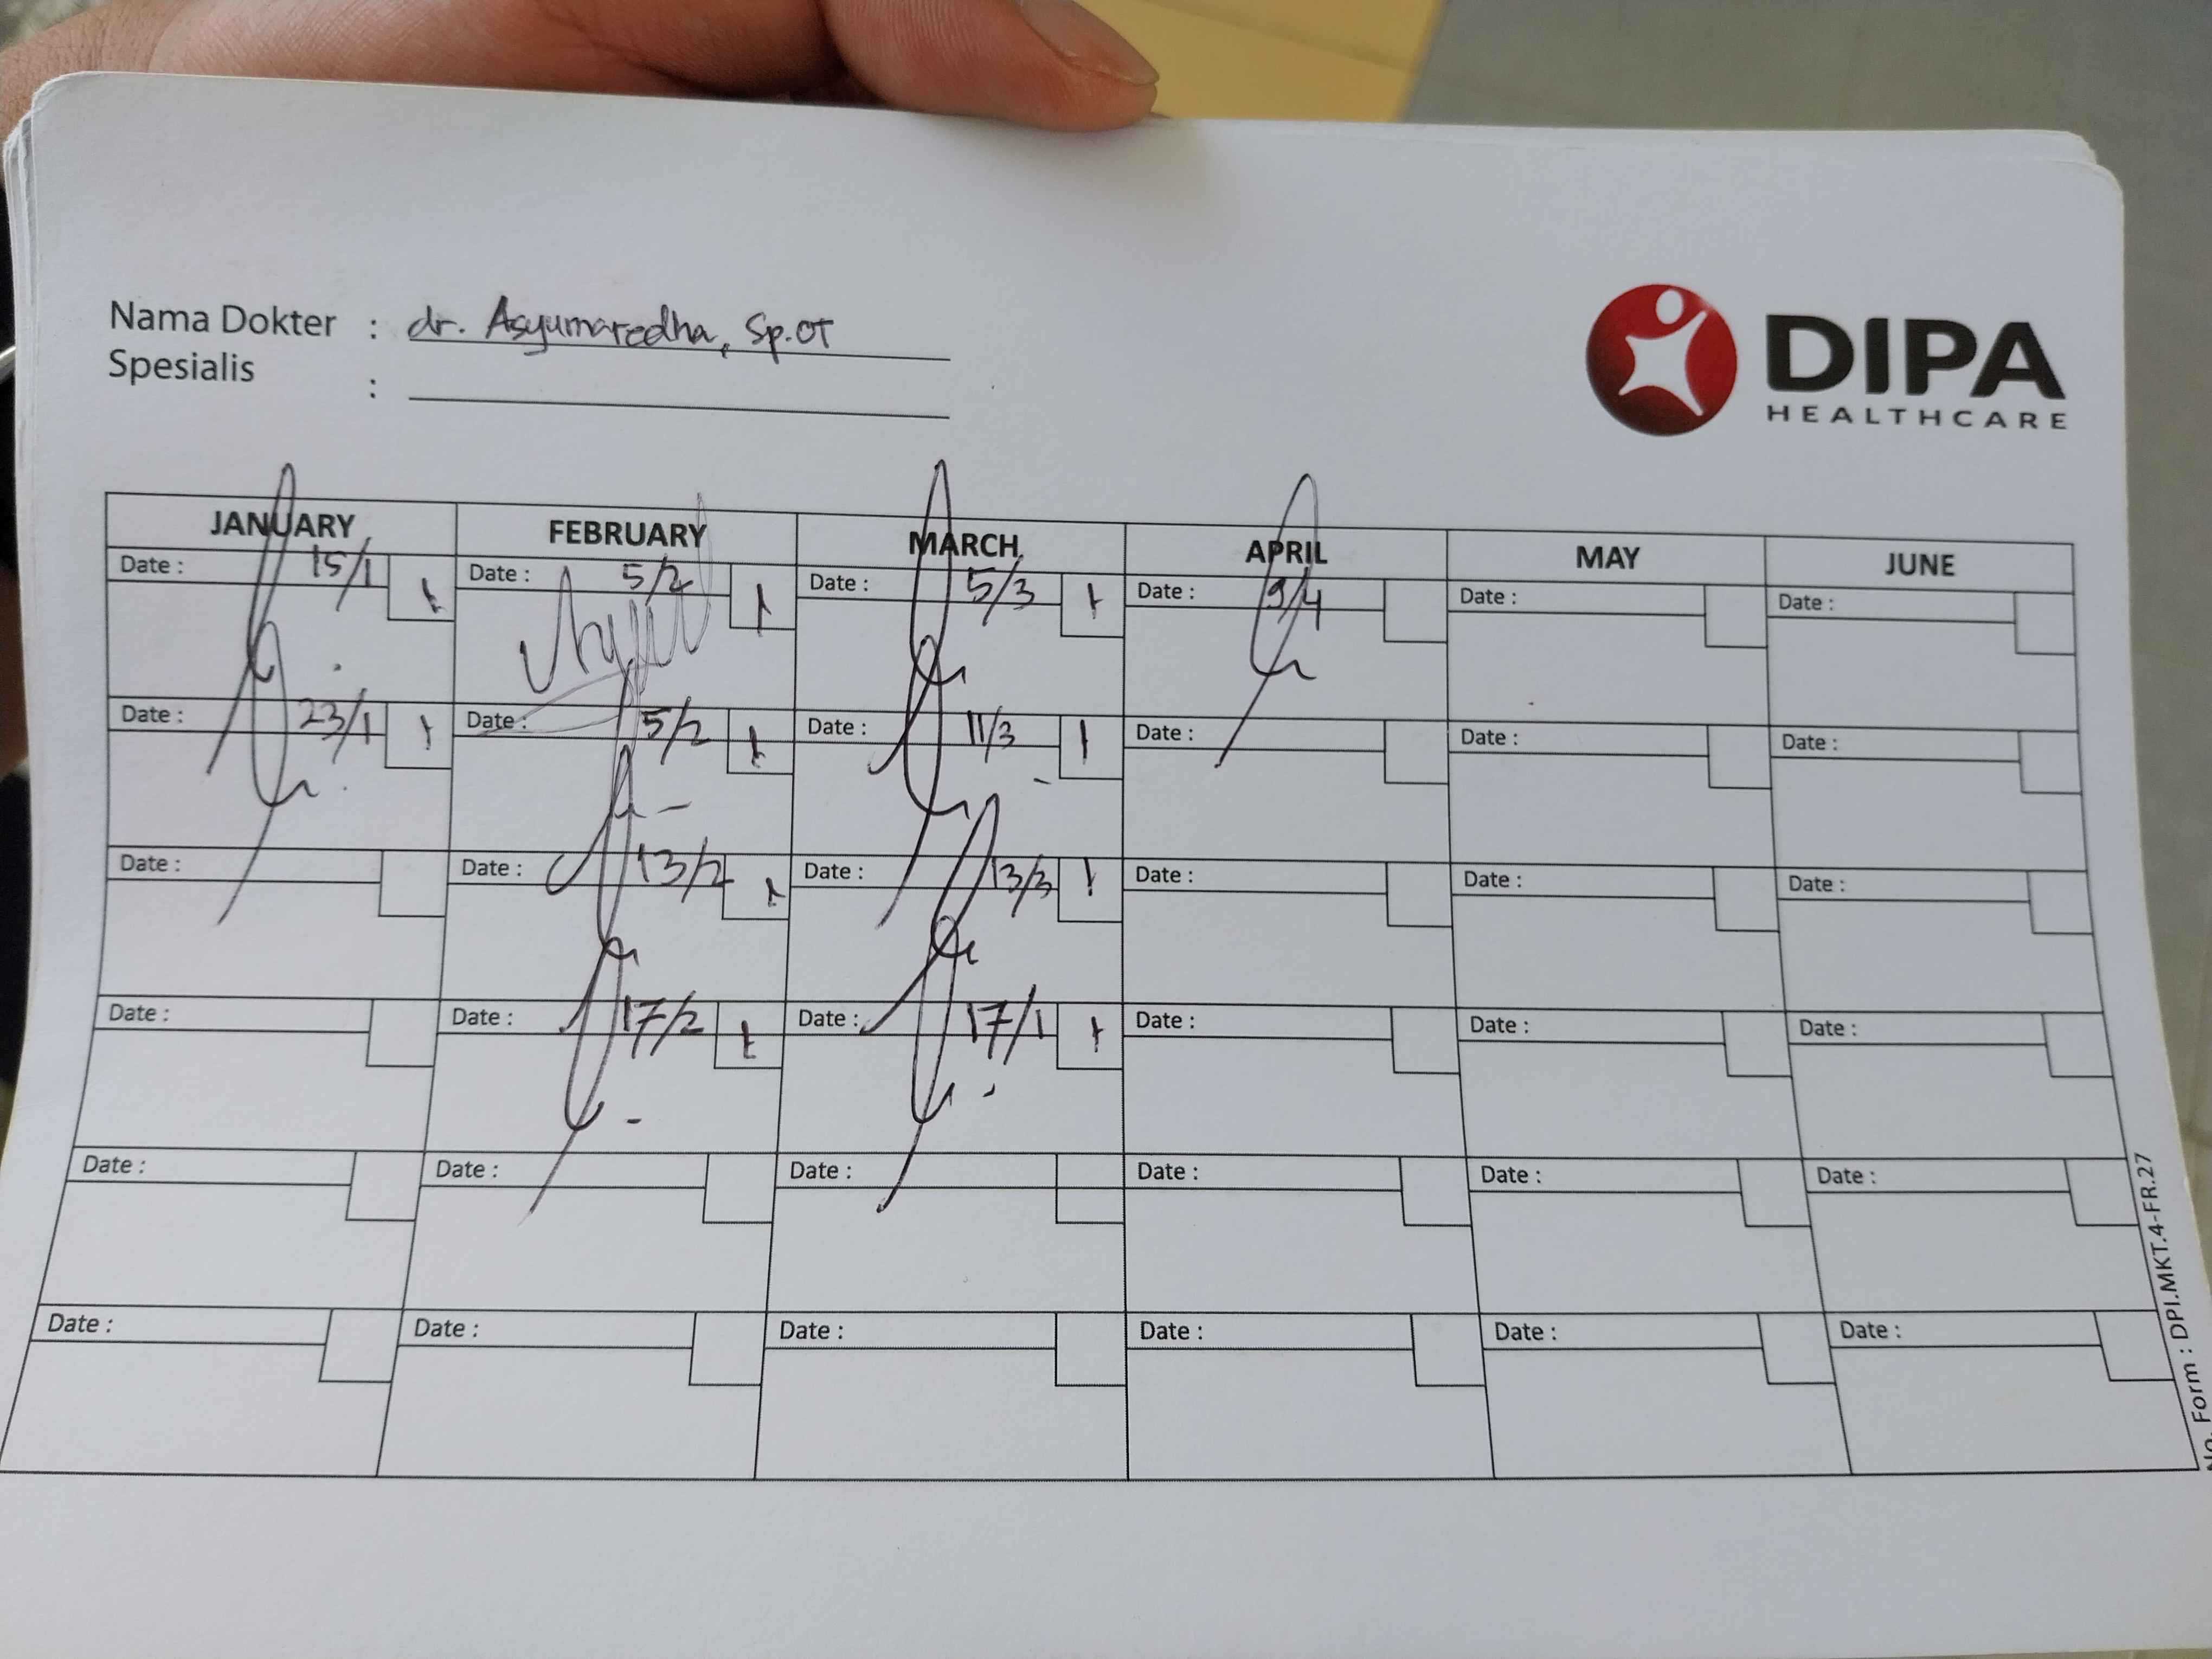 Nama Dokter : dr. Asyumaredha, Sp.OT
Spesialis :
DIPA
HEALTHCARE
JANUARY FEBRUARY MARCH APRIL MAY JUNE
Date : 15/1 Date : 5/2 Date : 5/3 Date : 9/4 Date : Date :
Date : 23/1 Date : 5/2 Date : 11/3 Date : Date : Date :
Date : Date : 13/2 Date : 13/3 Date : Date : Date :
Date : Date : 17/2 Date : 17/1 Date : Date : Date :
Date : Date : Date : Date : Date : Date :
Date : Date : Date : Date : Date : Date :
No. Form : DPI.MKT.4-FR.27